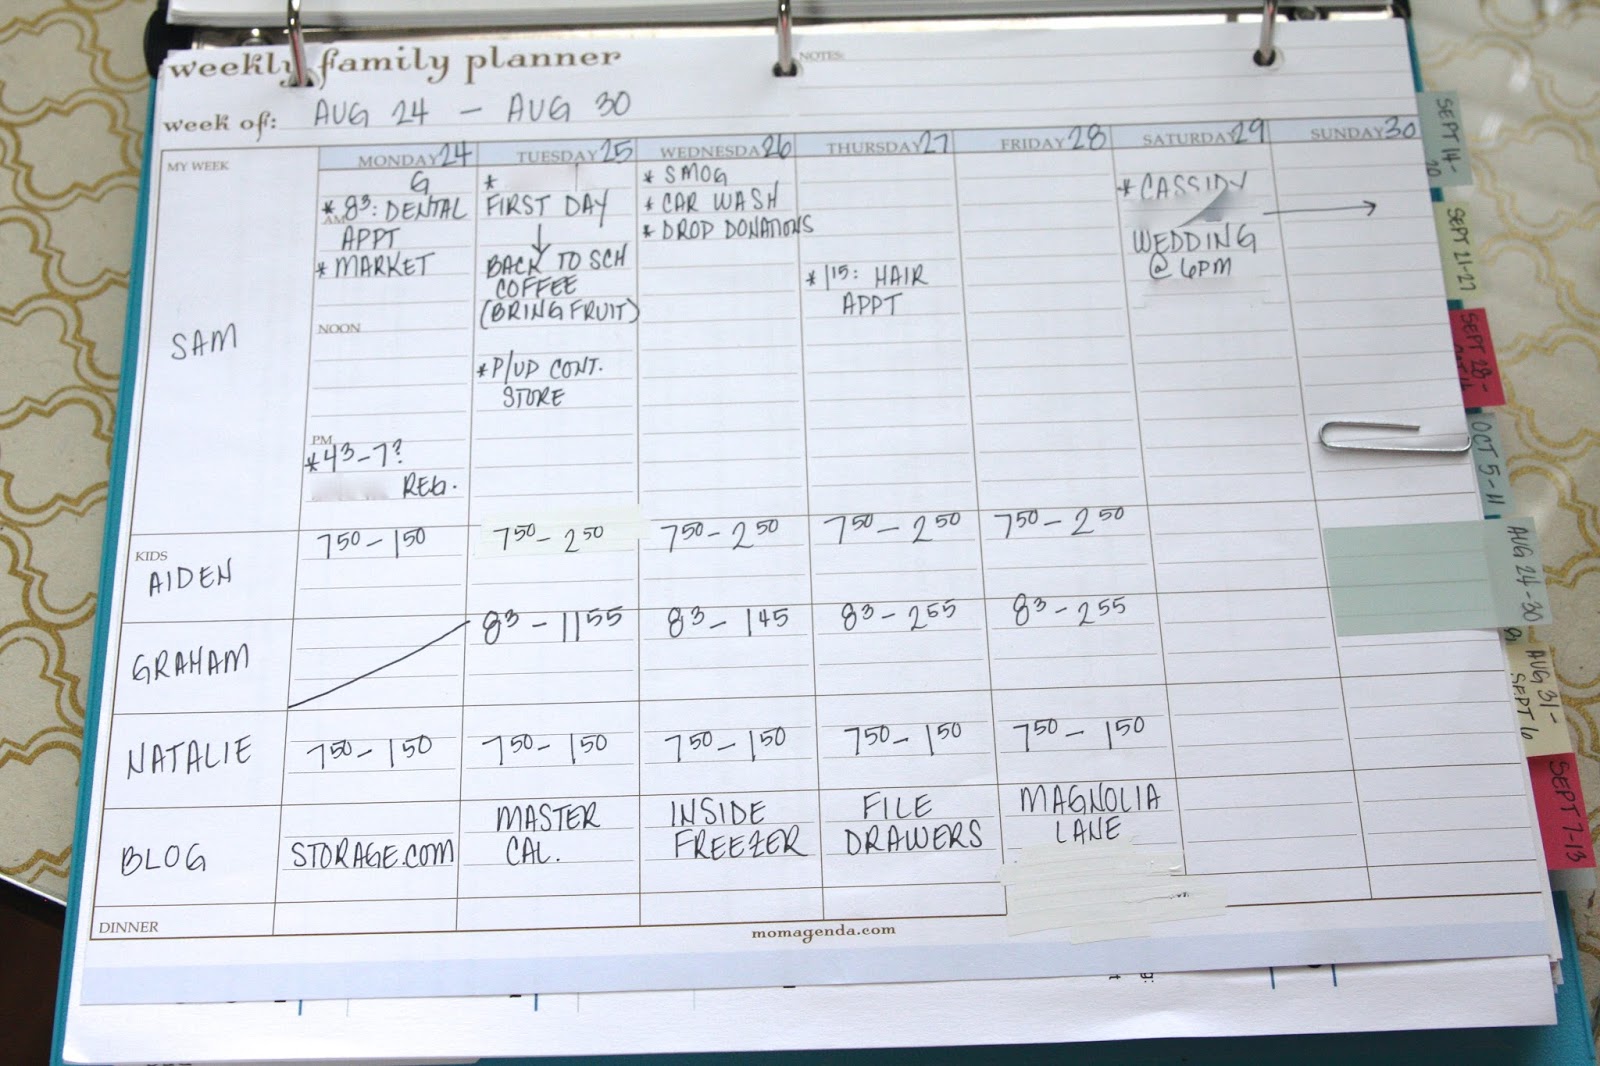 weekly family planner
NOTES:
week of: AUG 24 – AUG 30
MY WEEK
MONDAY 24
TUESDAY 25
WEDNESDAY 26
THURSDAY 27
FRIDAY 28
SATURDAY 29
SUNDAY 30
SAM
G
* 8³: DENTAL
AM
APPT
* MARKET
NOON
PM
* 4³–7?
REG.
*
FIRST DAY
↓
BACK TO SCH
COFFEE
(BRING FRUIT)
* P/UP CONT.
STORE
* SMOG
* CAR WASH
* DROP DONATIONS
* 1¹⁵: HAIR
APPT
* CASSIDY
WEDDING →
@ 6PM
KIDS
AIDEN
7⁵⁰ – 1⁵⁰
7⁵⁰ – 2⁵⁰
7⁵⁰ – 2⁵⁰
7⁵⁰ – 2⁵⁰
7⁵⁰ – 2⁵⁰
GRAHAM
8³ – 11⁵⁵
8³ – 1⁴⁵
8³ – 2⁵⁵
8³ – 2⁵⁵
NATALIE
7⁵⁰ – 1⁵⁰
7⁵⁰ – 1⁵⁰
7⁵⁰ – 1⁵⁰
7⁵⁰ – 1⁵⁰
7⁵⁰ – 1⁵⁰
BLOG
STORAGE.COM
MASTER
CAL.
INSIDE
FREEZER
FILE
DRAWERS
MAGNOLIA
LANE
DINNER
momagenda.com
SEPT 14-
20
SEPT 21-27
SEPT 28-
OCT 4
OCT 5-11
AUG 24-30
AUG 31-
SEPT 6
SEPT 7-13